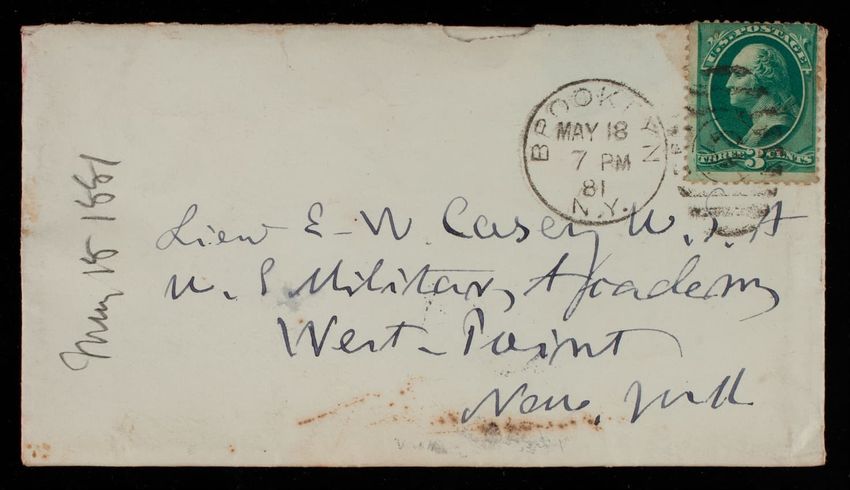 U.S. POSTAGE
THREE 3 CENTS
BROOKLYN
MAY 18
7 PM
81
N.Y.
Lieu E-W. Casey U.S.A
U.S Military Academy
West-Point
New York
May 18 1881